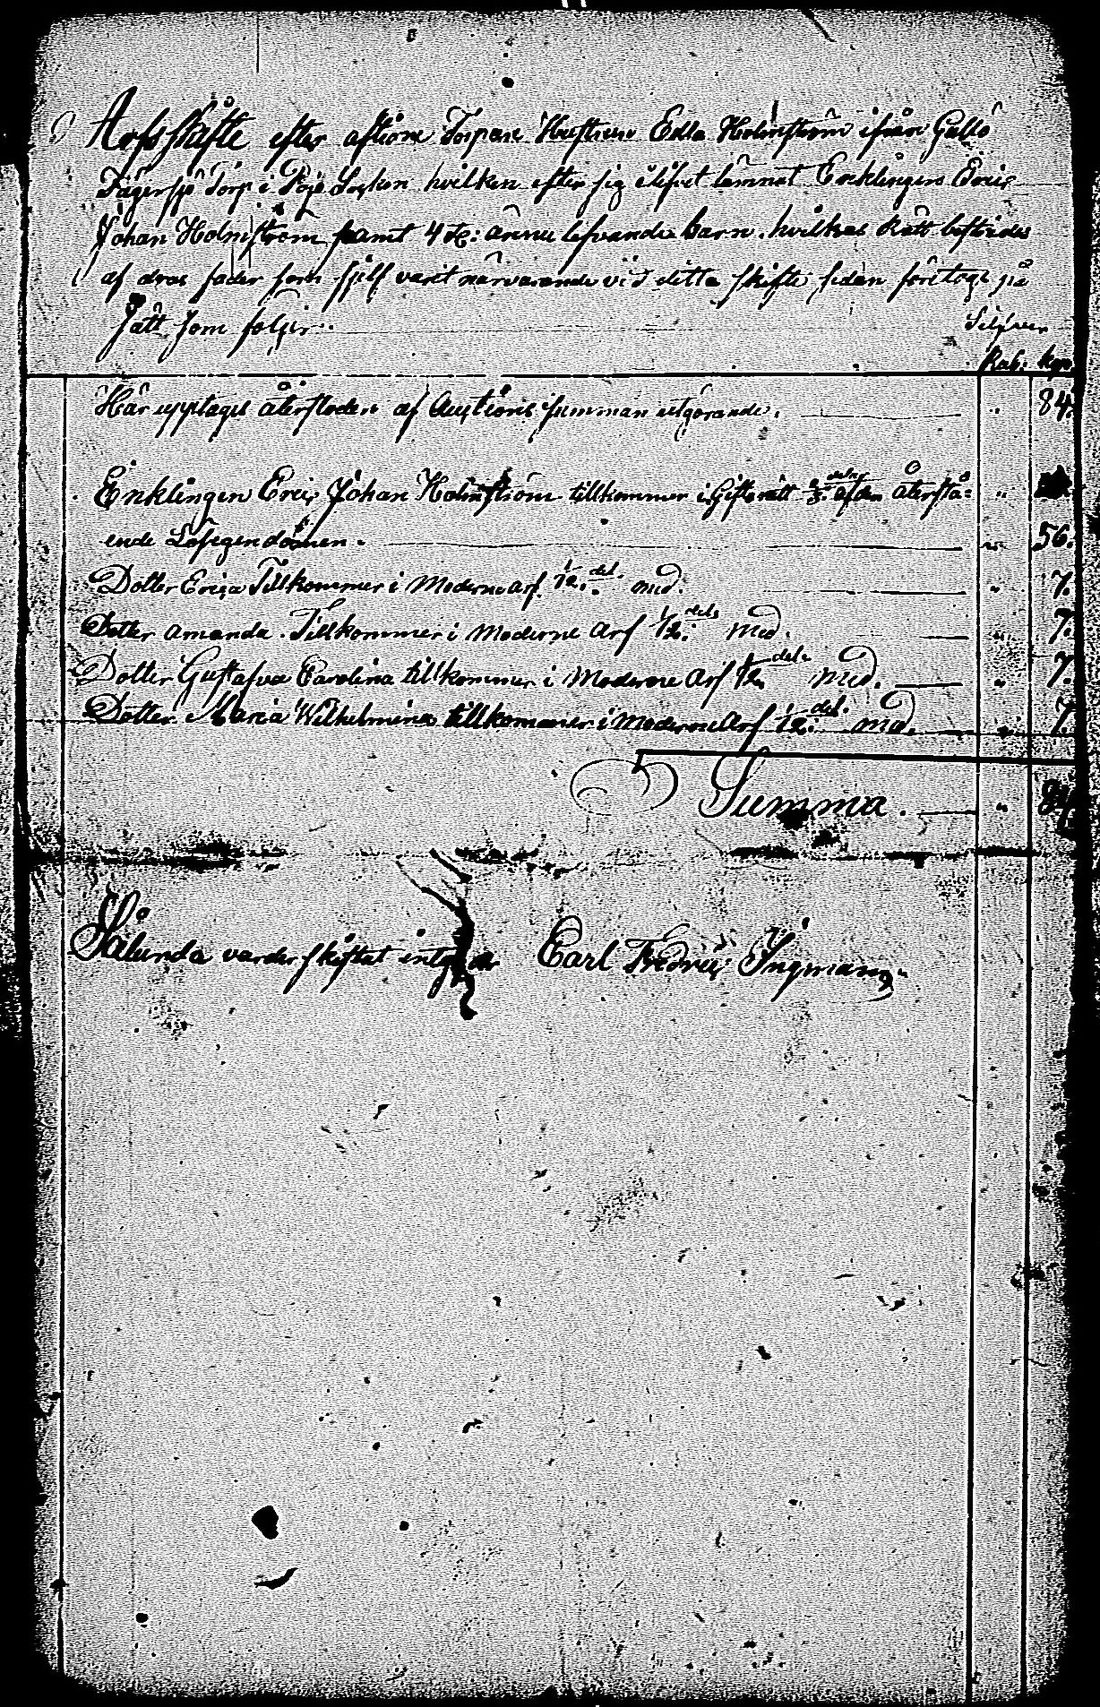 Arfsskifte efter aflidne Torpare Hustrun Edla Holmström ifrån Gullö
Fägersjö Torp i Pojo Socken hvilken efter sig i lifvet lämnat Enklingen Eric
Johan Holmström samt 4 st: ännu lefvande barn. hvilkas Rätt bestrides
af dras fader som sjelf varit närvarande vid detta skifte sedan företogs på
sätt som följer.
Silfver
Rub: kop.
Här upptages återstoden af Auctions summan utgörande. " 84.
Enklingen Eric Johan Holmström tillkommer i Giftorätt 2/3 delar af den Återstå= "
ende Lösegendomen. " 56.
Dotter Erica Tillkommer i Moderne Arf. 1/12. del. med. " 7.
Dotter Amanda. Tillkommer i Moderne Arf 1/12. dels med. " 7.
Dotter Gustafva Carolina tillkommer i Moderne Arf 1/12 dels med. " 7.
Dotter Maria Wilhelmina tillkommer i Moderne Arf 1/12. del. med. " 7.
Summa. " 84
Sålunda varder skiftat Carl Fredric Ingman